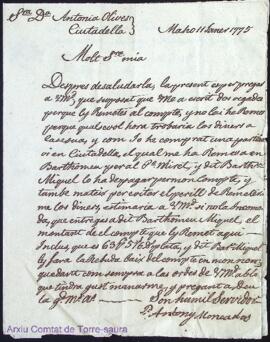 Sra Da Antonia Olives
Ciutadella
Maho 11 Janer 1775
Molt Sra mia
Despres de saludarla, la present es per pregar
a Vm, que suposat que Me a escrit dos vegades
perque ly Remetes al compte, y no las he Remes
perque qualsevol hora trobaria los diners a
casa sua, y com Jo he comprat una partida
vi en Ciutadella, el qual me ha Remes en
Barthomeu Miquel, y dit Barto
Miquel lo ha de pagar per mon Compte, y
tambe mateix per evitar el perill de Remetre
me los diners, estimaria a Vm si no la Incomoda,
que entregas a dit Barthomeu Miquel, el
montant de el compte que ly Remet aqui
Inclus, que es 63 y dit Bar Miquel
ly fara la Rebuda baix del compte en mon nom,
quedant com sempre a las ordes de Vm
que tindra gust manarme, y pregant a Deu
la gde ms as
Son humil Servidor
Antony Moncadas
Arxiu Comtat de Torre-saura